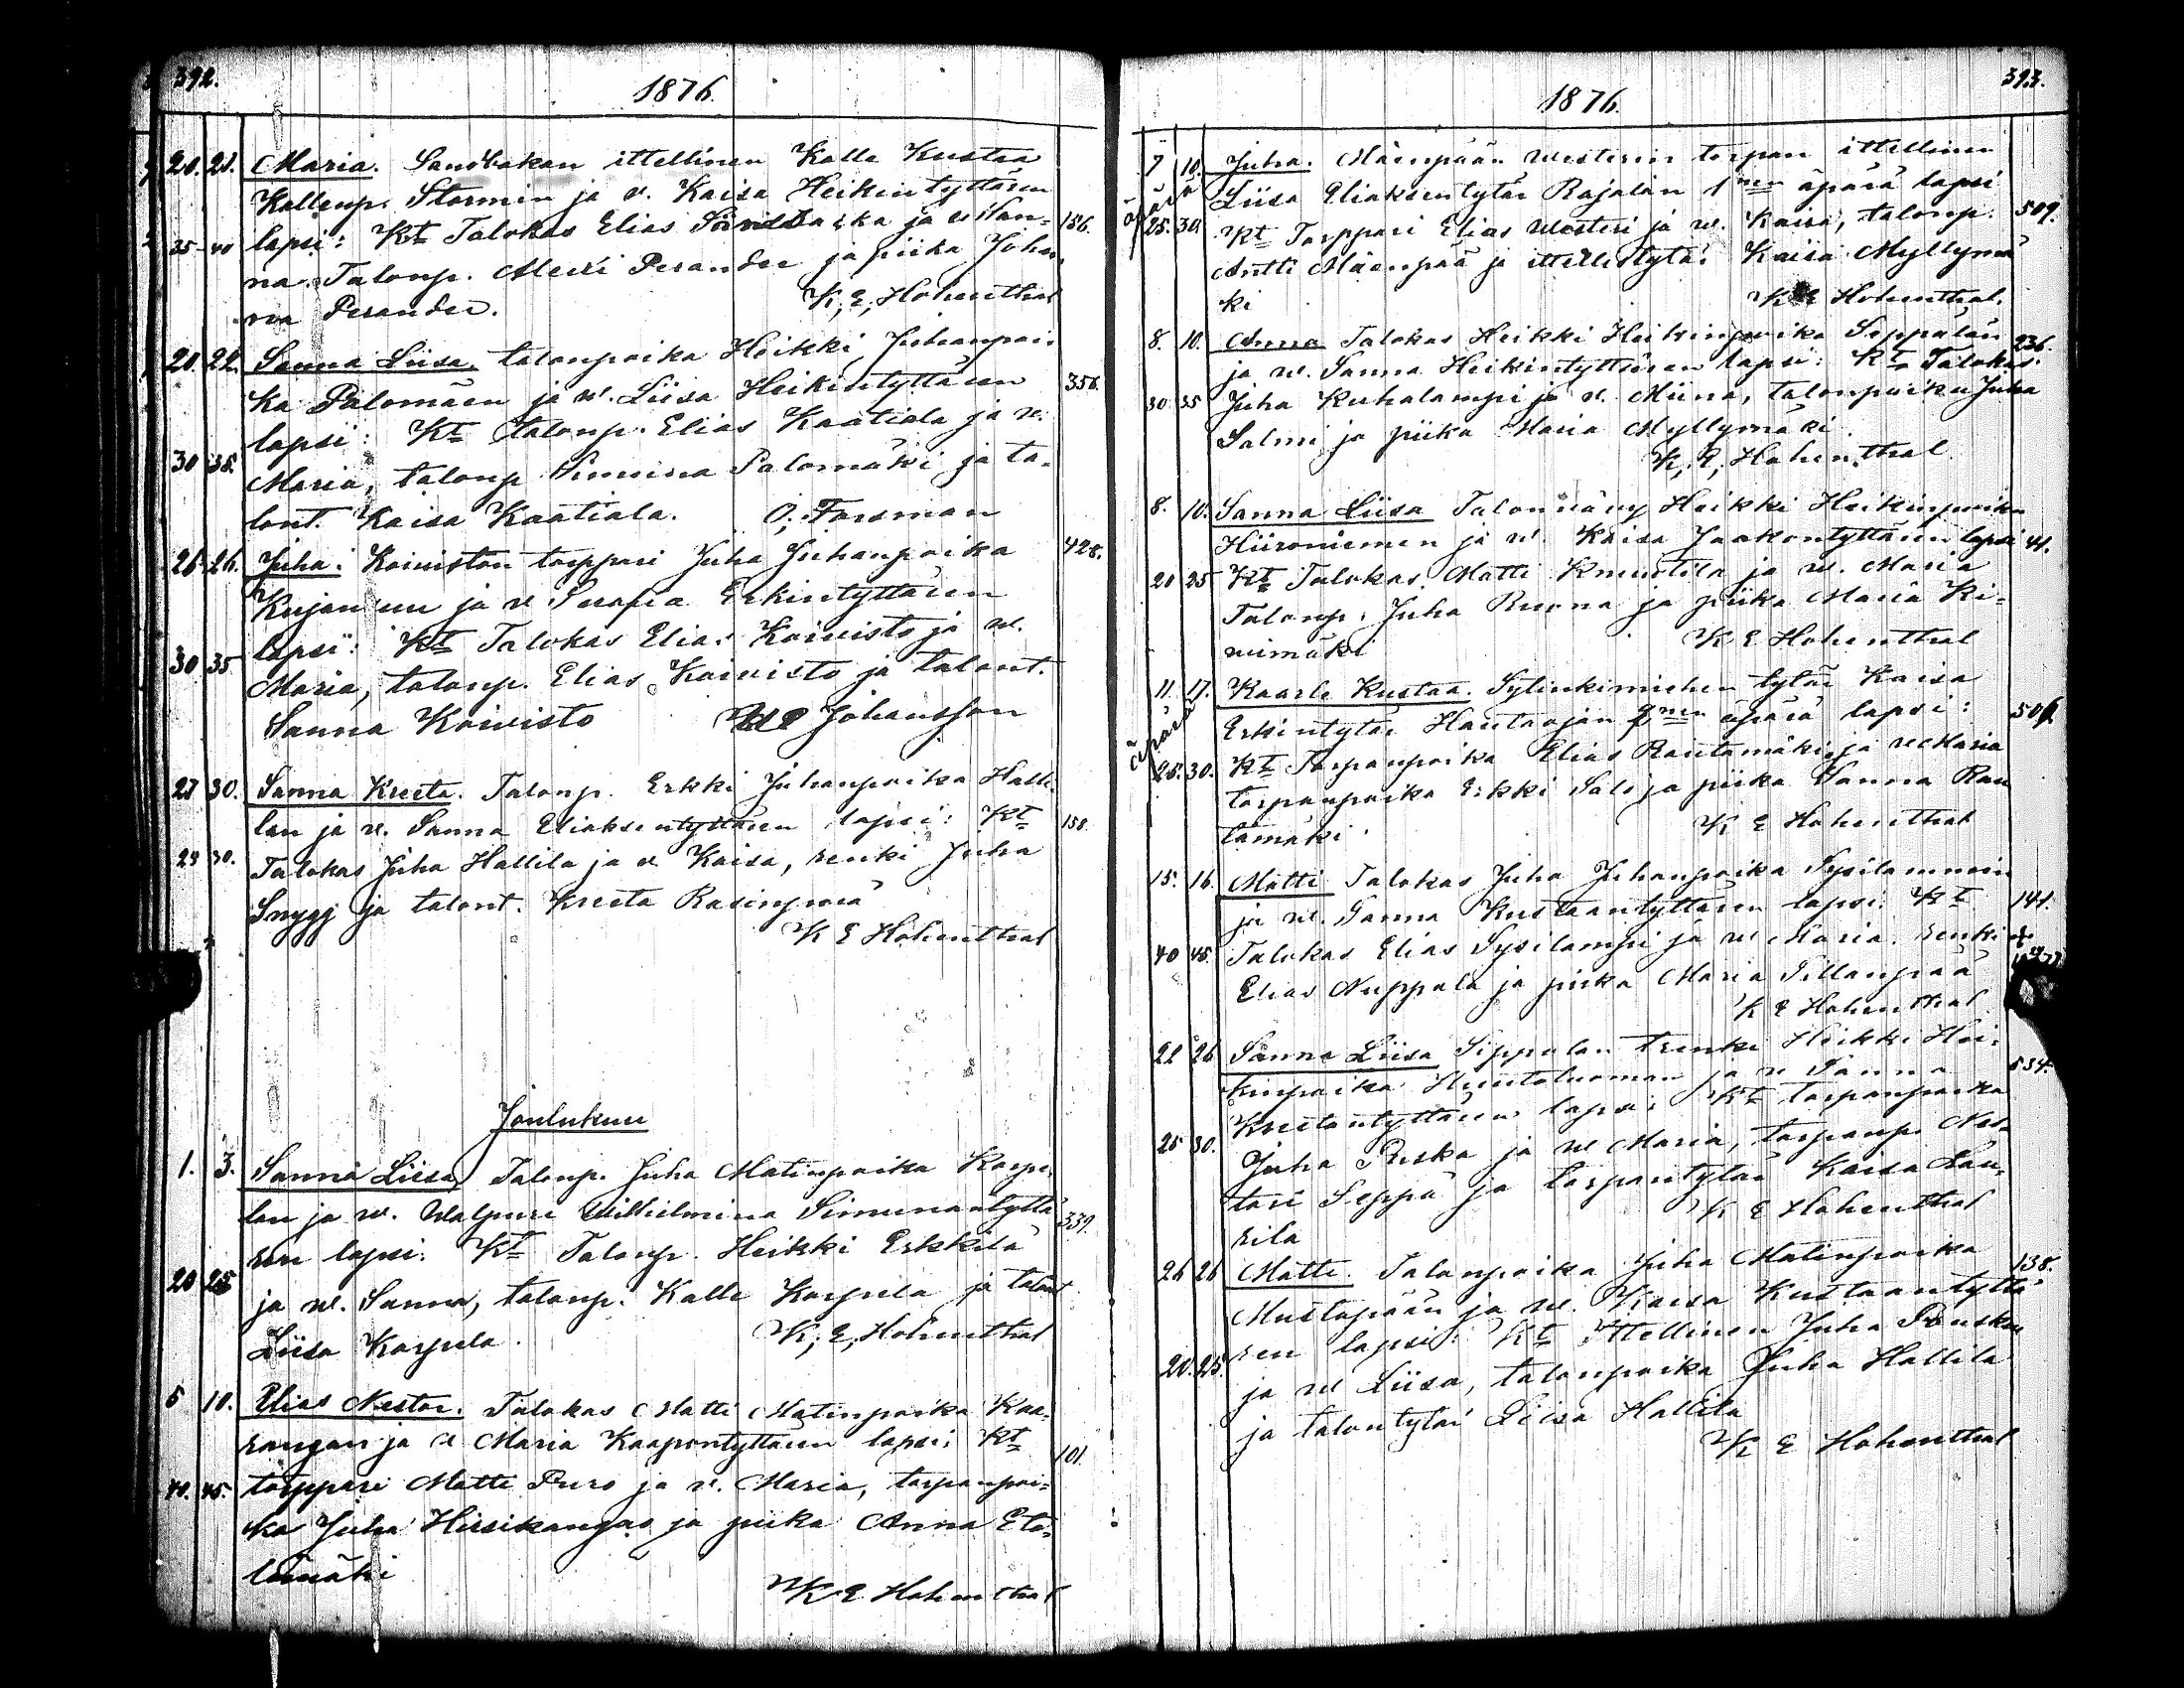 392.
1876.
20. 21. Maria. Sandbakan ittellinen Kalle Kustaa
Kallenp. Stormin ja v. Kaisa Heikintyttären
lapsi: Kt Talokas Elias Sandbakka ja v San- 156.
35-40 na. Talonp. Aleksi Perander ja piika Johan-
na Perander. K. E. Hohenthal
20. 22. Sanna Liisa. talonpoika Heikki Juhanpoi-
ka Palomäen ja v. Liisa Heikintyttären 356.
lapsi: Kt talonp. Elias Kaatiala ja v.
30 35. Maria, talonp Palomäki ja ta-
lont. Kaisa Kaatiala. O. Forsman
26. 26. Juha: Koiviston torppari Juha Juhanpoika 428.
ja v Serafia Erkintyttären
lapsi: Kt Talokas Elias Koivisto ja v.
30 35 Maria, talonp. Elias Koivisto ja talont.
Sanna Koivisto Johansson
27 30. Sanna Kreeta. Talonp. Erkki Juhanpoika Halli-
lan ja v. Sanna Eliaksentyttären lapsi: Kt 158.
29 30. Talokas Juha Hallila ja v Kaisa, renki Juha
Snygg ja talont. Kreeta Rasinpää
K E Hohenthal
Joulukuu
1. 3. Sanna Liisa Talonp. Juha Matinpoika Karpe-
lan ja v. Walpuri Wilhelmina Simunantyttä- 339.
ren lapsi: Kt Talonp. Heikki Erkkilä
20 25 ja v. Sanna, talonp. Kalle Karpela ja talont
Liisa Karpela. K. E. Hohenthal
5 10. Elias Nestor. Talokas Matti Matinpoika Kaa-
rangan ja v Maria Kaapontyttären lapsi: Kt 101.
40. 45. torppari Matti Puro ja v. Maria, torpanpoi-
ka Juha Hirsikangas ja piika Anna Ete-
lämäki
K E Hohenthal
393.
1876.
7 10. Juha. Mäenpään Westerin torpan ittellinen
äpärä Liisa Eliaksentytär Rajalan 1nen äpärä lapsi 509.
25. 30. Kt Torppari Elias Westeri ja v. Kaisa, talonp.
Antti Mäenpää ja ittellistytär Kaisa Myllymä
ki K E Hohenthal.
8. 10. Anna Talokas Heikki Heikinpoika Seppälän 236.
ja v. Sanna Heikintyttären lapsi: Kt Talokas
30 35 Juha Kuhalampi ja v. Miina, talonpoika Juha
Salmi ja piika Maria Myllymäki.
K. E. Hohenthal
8. 10. Sanna Liisa Talonvävy Heikki Heikinpoika
Hiironiemen ja v. Kaisa Jaakontyttären lapsi 41.
20 25 Kt Talokas Matti Knuuttila ja v. Maria
Talonp. Juha Ruona ja piika Maria Ki-
vimäki K E Hohenthal
11. 17. Kaarle Kustaa. Sylinkimiehen tytär Kaisa
äpärä Erkintytär Hautaojan 2nen äpärä lapsi: 506
25. 30. Kt Torpanpoika Elias Rantamäki ja v Maria
torpanpoika Erkki Salo ja piika Sanna Ran
tamäki. K E Hohenthal
15. 16. Matti Talokas Juha Juhanpoika Sysilammin
ja v. Sanna Kustaantyttären lapsi: Kt 141.
40 45. Talokas Elias Sysilampi ja v Maria. renki +
Elias Nuppola ja piika Maria Sillanpää
K E Hohenthal
22 26 Sanna Liisa Seppälan trenki Heikki Hei-
kinpoika Huntaluoman ja v Sanna 534.
Kreetantyttären lapsi: Kt torpanpoika
25 30. Juha Ruska ja v Maria, torpanp. Nes-
tari Seppä ja torparitytär Kaisa Lau-
rila K E Hohenthal
26 26 Matti. Talonpoika Juha Matinpoika 138.
Mustapään ja v. Kaisa Kustaantyttä
ren lapsi: Kt Ittellinen Juha Rouskus
20. 25. ja v Liisa, talonpoika Juha Hallila
ja talontytär Liisa Hallila
K E Hohenthal